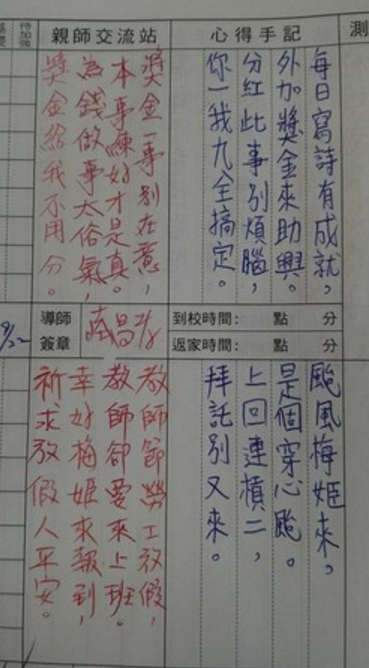 測
心得手記
親師交流站
待加強
每日寫詩有成就，
外加獎金來助興。
分紅此事別煩腦，
你一我九全搞定。
獎金一事別在意，
本事練好才是真。
為錢做事太俗氣，
獎金給我不用分。
到校時間： 點 分
返家時間： 點 分
導師
簽章
颱風梅姬來，
是個穿心颱。
上回連槓二，
拜託別又來。
教師節勞工放假，
教師卻要來上班。
幸好梅姬求報到，
祈求放假人平安。